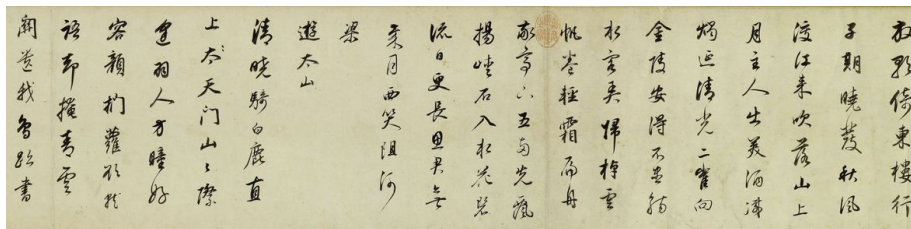 放歌倚東樓行
子期曉發秋風
渡江来吹落山上
月主人出美酒滅
燭延清光二崔向
金陵安得不盡觴
水客弄歸棹雲
帆卷輕霜扁舟
敬亭下五兩先飄
揚峡石入水花碧
流日更長思君無
歲月西笑阻河
梁
遊太山
清曉騎白鹿直
上太天门山々際
逢羽人方瞳好
容顏捫蘿欲就
語却掩青雲
關遺我鳥跡書